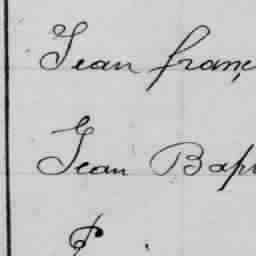 Jean franç
Jean Bap